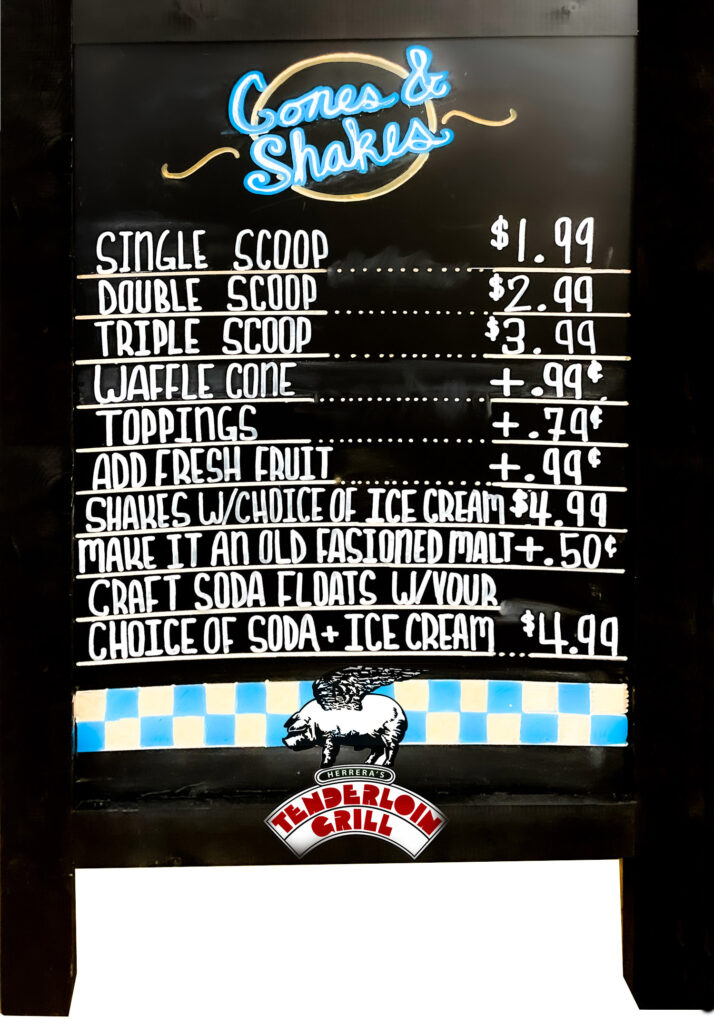 Cones &
Shakes
SINGLE SCOOP..................$1.99
DOUBLE SCOOP..................$2.99
TRIPLE SCOOP..................$3.99
WAFFLE CONE..................+.99¢
TOPPINGS..................+.79¢
ADD FRESH FRUIT..................+.99¢
SHAKES W/CHOICE OF ICE CREAM $4.99
MAKE IT AN OLD FASIONED MALT +.50¢
CRAFT SODA FLOATS W/YOUR
CHOICE OF SODA + ICE CREAM....$4.99
HERRERA'S
TENDERLOIN
GRILL